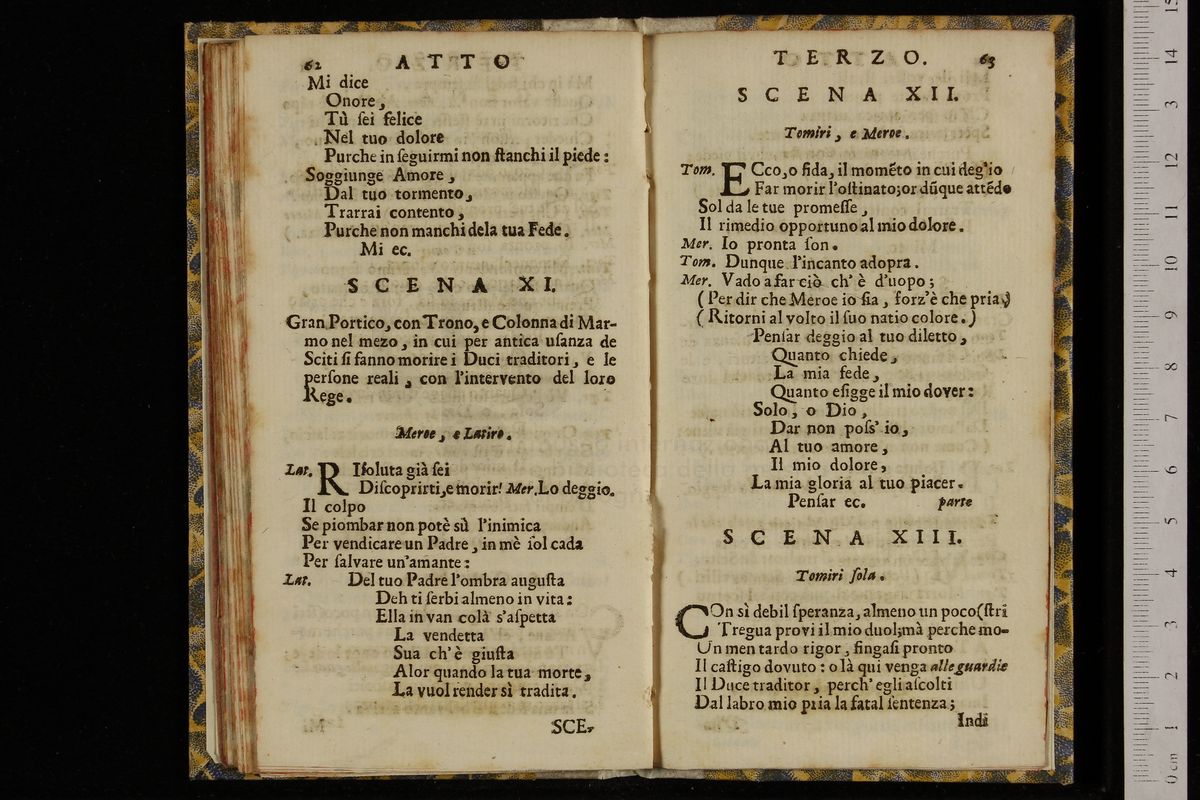 62 ATTO
Mi dice
Onore,
Tù ſei felice
Nel tuo dolore
Purche in ſeguirmi non ſtanchi il piede:
Soggiunge Amore,
Dal tuo tormento,
Trarrai contento,
Purche non manchi dela tua Fede.
Mi ec.
SCENA XI.
Gran Portico, con Trono, e Colonna di Mar-
mo nel mezo, in cui per antica uſanza de
Sciti ſi fanno morire i Duci traditori, e le
perſone reali, con l'intervento del loro
Rege.
Meroe, e Latiro.
Lat. RIſoluta già ſei
Diſcoprirti, e morir! Mer. Lo deggio.
Il colpo
Se piombar non potè sù l'inimica
Per vendicare un Padre, in mè ſol cada
Per ſalvare un'amante:
Lat. Del tuo Padre l'ombra auguſta
Deh ti ſerbi almeno in vita:
Ella in van colà s'aſpetta
La vendetta
Sua ch'è giuſta
Alor quando la tua morte,
La vuol render sì tradita.
SCE-
TERZO. 63
SCENA XII.
Tomiri, e Meroe.
Tom. ECco, o fida, il momẽto in cui deg'io
Far morir l'oſtinato; or dũque attẽdo
Sol da le tue promeſſe,
Il rimedio opportuno al mio dolore.
Mer. Io pronta ſon.
Tom. Dunque l'incanto adopra.
Mer. Vado a far ciò ch'è d'uopo;
(Per dir che Meroe io ſia, forz'è che pria,)
(Ritorni al volto il ſuo natio colore.)
Penſar deggio al tuo diletto,
Quanto chiede,
La mia fede,
Quanto eſigge il mio dover:
Solo, o Dio,
Dar non poſſ'io,
Al tuo amore,
Il mio dolore,
La mia gloria al tuo piacer.
Penſar ec. parte
SCENA XIII.
Tomiri ſola.
COn sì debil ſperanza, almeno un poco (ſtri
Tregua provi il mio duol; mà perche mo-
Un men tardo rigor, fingaſi pronto
Il caſtigo dovuto: o là qui venga alle guardie
Il Duce traditor, perch'egli aſcolti
Dal labro mio pria la fatal ſentenza;
Indi
0 cm 1 2 3 4 5 6 7 8 9 10 11 12 13 14 15